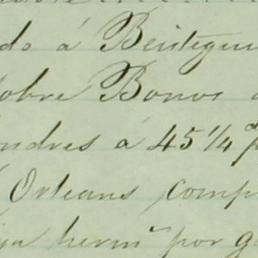 do á Beistegui
sobre Bonos
ondres á 45 1/4 p
Orleans comp
ga hermª por g